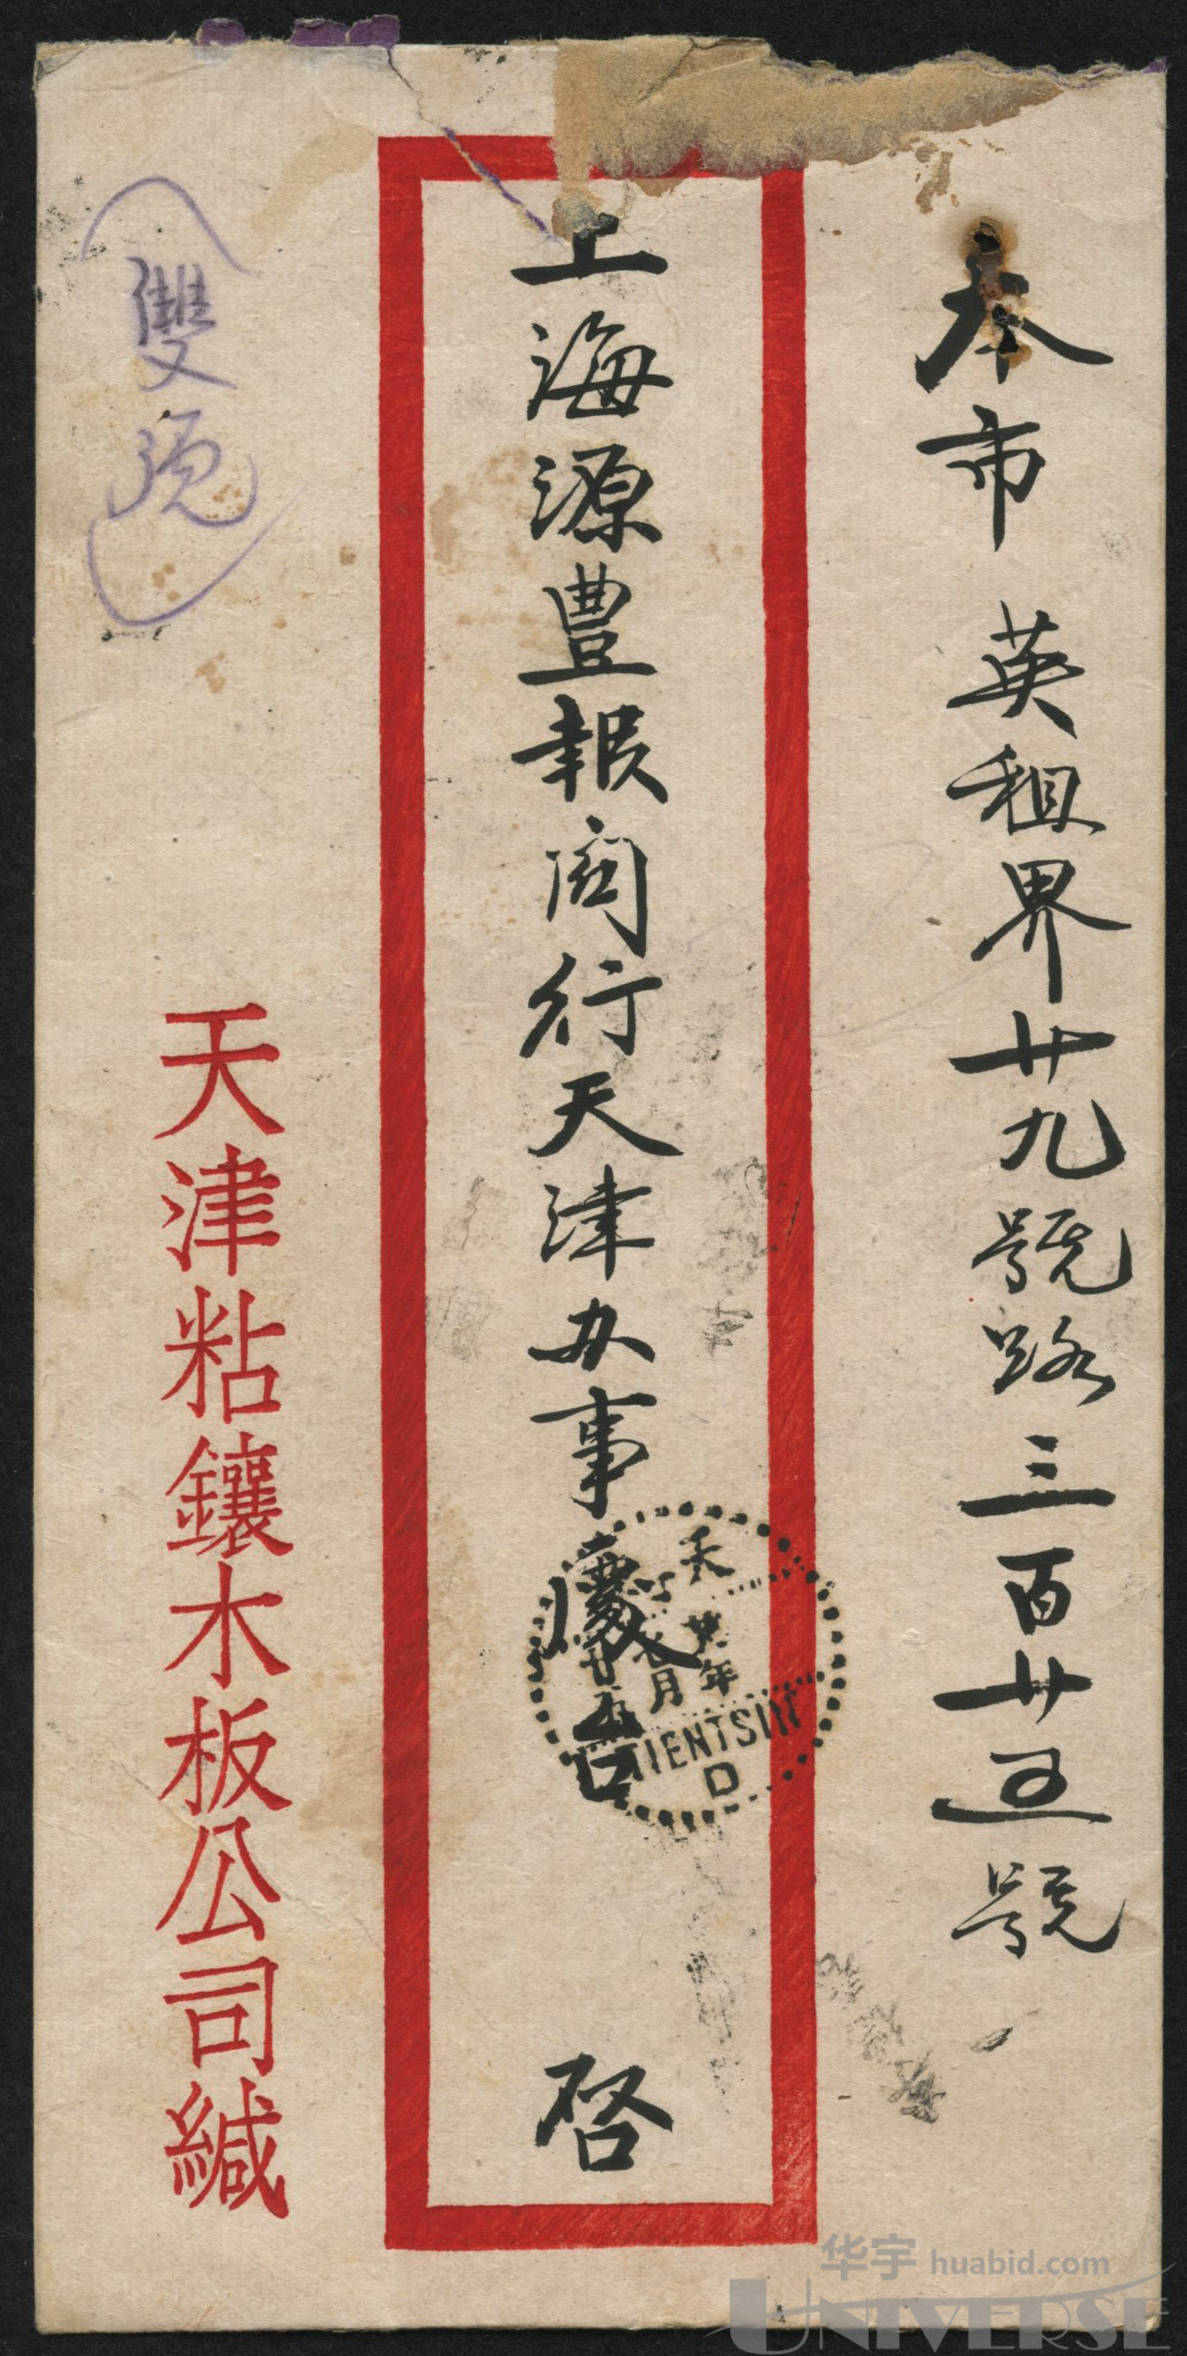 本市英租界廿九號路三百廿五號
上海源豊報關行天津办事處
台 啓
天津粘鑲木板公司緘
天
年
七月
TIENTSIN
D
华宇 huabid.com
UNIVERSE